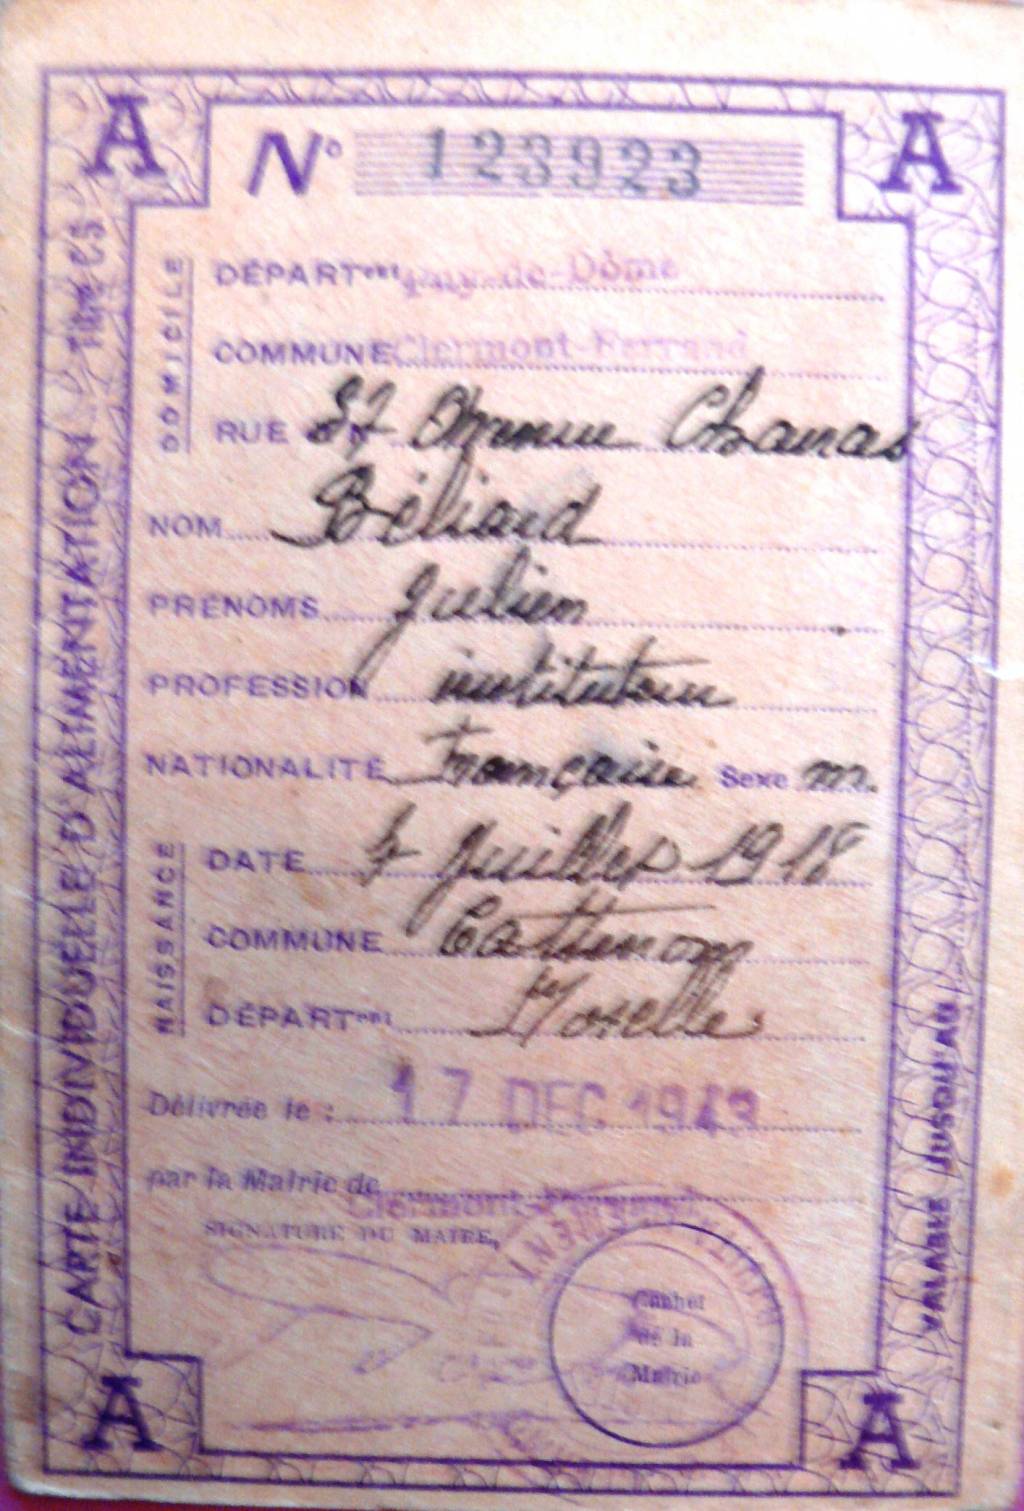 A A
N° 123923
CARTE INDIVIDUELLE D'ALIMENTATION Titres
DOMICILE
DÉPARTEMENT Puy-de-Dôme
COMMUNE Clermont-Ferrand
RUE Avenue Chanas
NOM Béliard
PRÉNOMS Julien
PROFESSION instituteur
NATIONALITÉ Française Sexe m.
NAISSANCE
DATE Juillet 1918
COMMUNE Cattenom
DÉPARTEMENT Moselle
Délivrée le : 17 DEC 1943
par la Mairie de Clermont-Ferrand
SIGNATURE DU MAIRE,
Cachet
de la
Mairie
VALABLE JUSQU'AU
A A